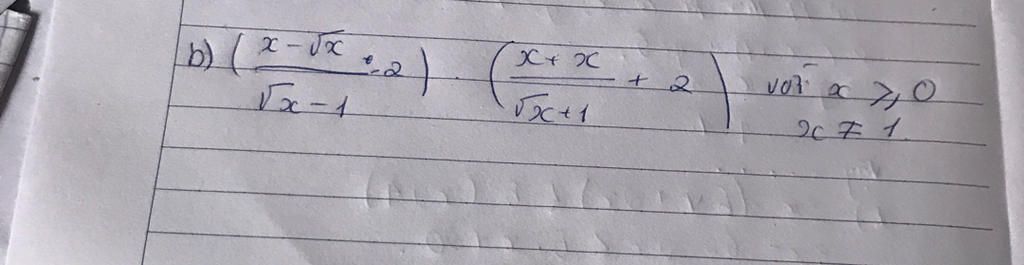 b) ( \frac{x - \sqrt{x}}{\sqrt{x} - 1} - 2 ) . ( \frac{x + x}{\sqrt{x} + 1} + 2 ) với x ⩾ 0
x ≠ 1